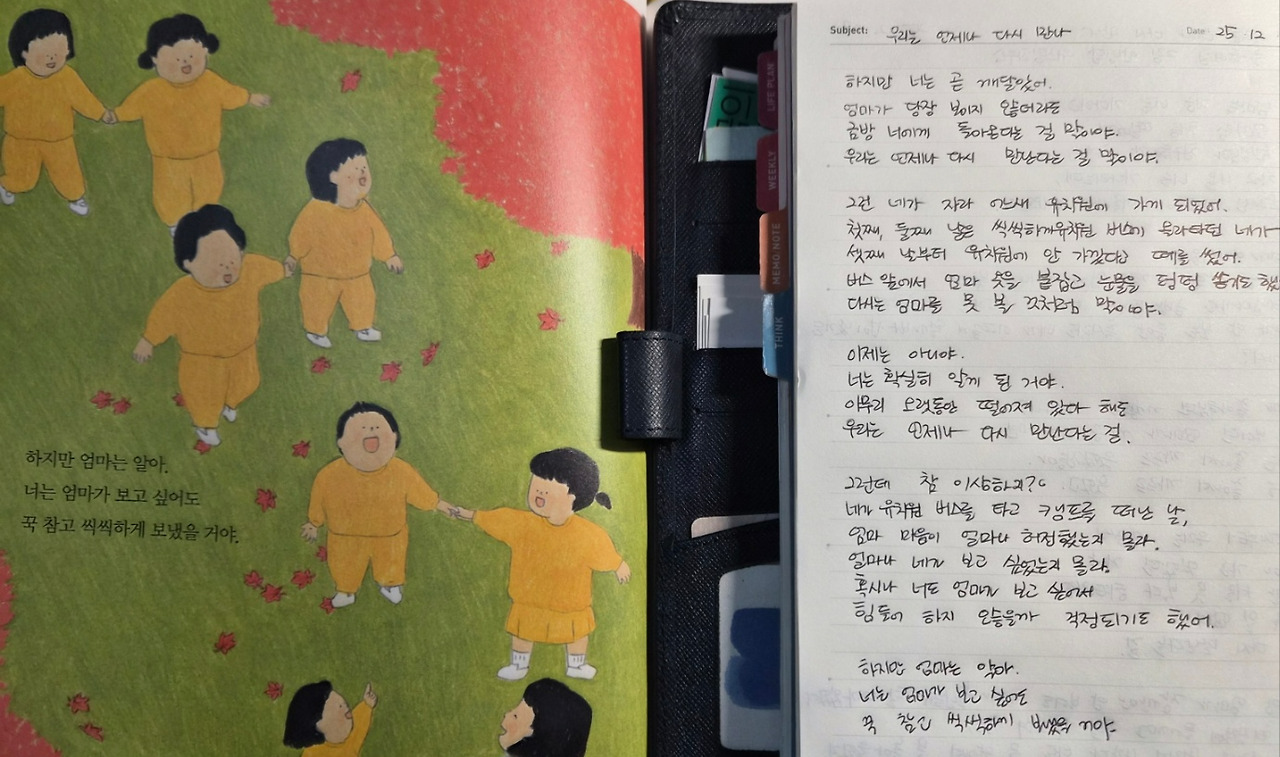 하지만 엄마는 알아.
너는 엄마가 보고 싶어도
꾹 참고 씩씩하게 보냈을 거야.
LIFE PLAN
WEEKLY
MEMO NOTE
THINK
Subject: 우리는 언제나 다시 만나
Date 25 12
하지만 너는 곧 깨달았어.
엄마가 당장 보이지 않더라도
금방 너에게 돌아온다는 걸 말이야.
우리는 언제나 다시 만난다는 걸 말이야.
그런 네가 자라 어느새 유치원에 가게 되었어.
첫째, 둘째 날은 씩씩하게 유치원 버스에 올라타던 네가
셋째 날부터 유치원에 안 가겠다고 떼를 썼어.
버스 앞에서 엄마 옷을 붙잡고 눈물을 펑펑 쏟기도 했
다시는 엄마를 못 볼 것처럼 말이야.
이제는 아니야.
너는 확실히 알게 된 거야.
아무리 오랫동안 떨어져 있다 해도
우리는 언제나 다시 만난다는 걸.
그런데 참 이상하지?
네가 유치원 버스를 타고 캠프를 떠난 날,
엄마 마음이 얼마나 허전했는지 몰라.
얼마나 네가 보고 싶었는지 몰라.
혹시나 너도 엄마가 보고 싶어서
힘들어 하지 않을까 걱정되기도 했어.
하지만 엄마는 알아.
너는 엄마가 보고 싶어도
꾹 참고 씩씩하게 보냈을 거야